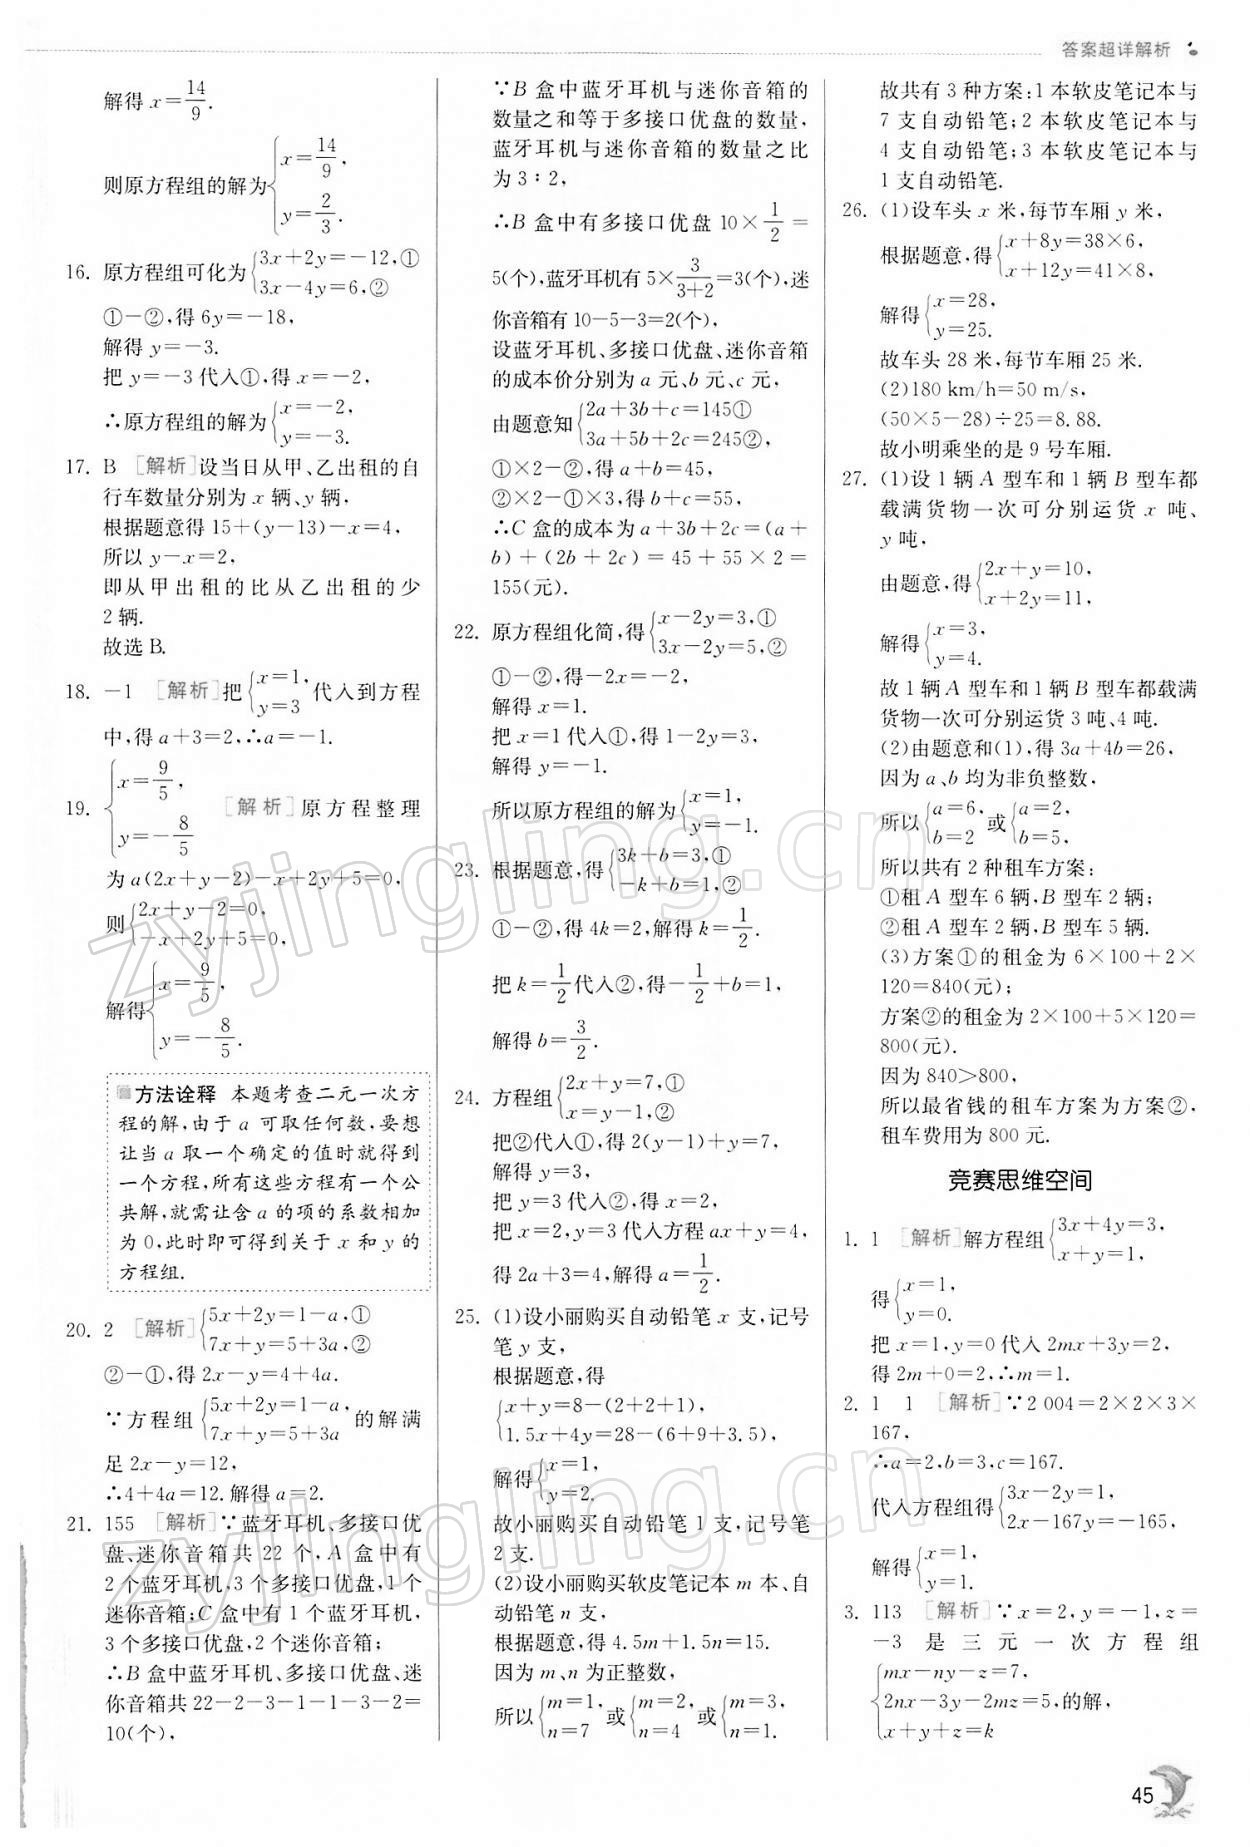 答案超详解析
解得 x=14/9.
则原方程组的解为{x=14/9, y=2/3.
16. 原方程组可化为{3x+2y=-12,① 3x-4y=6,②
①-②,得 6y=-18,
解得 y=-3.
把 y=-3代入①,得 x=-2,
∴原方程组的解为{x=-2, y=-3.
17. B [解析]设当日从甲、乙出租的自
行车数量分别为 x 辆、y 辆,
根据题意得 15+(y-13)-x=4,
所以 y-x=2,
即从甲出租的比从乙出租的少
2辆.
故选 B.
18. -1 [解析]把{x=1, y=3 代入到方程
中,得 a+3=2,∴a=-1.
19. {x=9/5, y=-8/5 [解析]原方程整理
为 a(2x+y-2)-x+2y+5=0,
则{2x+y-2=0, -x+2y+5=0,
解得{x=9/5, y=-8/5.
方法诠释 本题考查二元一次方
程的解,由于 a 可取任何数,要想
让当 a 取一个确定的值时就得到
一个方程,所有这些方程有一个公
共解,就需让含 a 的项的系数相加
为 0,此时即可得到关于 x 和 y 的
方程组.
20. 2 [解析]{5x+2y=1-a,① 7x+y=5+3a,②
②-①,得 2x-y=4+4a.
∵方程组{5x+2y=1-a, 7x+y=5+3a 的解满
足 2x-y=12,
∴4+4a=12.解得 a=2.
21. 155 [解析]∵蓝牙耳机、多接口优
盘、迷你音箱共 22 个,A 盒中有
2个蓝牙耳机,3个多接口优盘,1个
迷你音箱;C 盒中有 1 个蓝牙耳机,
3个多接口优盘,2个迷你音箱;
∴B 盒中蓝牙耳机、多接口优盘、迷
你音箱共 22-2-3-1-1-3-2=
10(个),
∵B 盒中蓝牙耳机与迷你音箱的
数量之和等于多接口优盘的数量,
蓝牙耳机与迷你音箱的数量之比
为 3∶2,
∴B 盒中有多接口优盘 10×1/2=
5(个),蓝牙耳机有 5×3/(3+2)=3(个),迷
你音箱有 10-5-3=2(个),
设蓝牙耳机、多接口优盘、迷你音箱
的成本价分别为 a 元、b 元、c 元,
由题意知{2a+3b+c=145① 3a+5b+2c=245②,
①×2-②,得 a+b=45,
②×2-①×3,得 b+c=55,
∴C 盒的成本为 a+3b+2c=(a+
b)+(2b+2c)=45+55×2=
155(元).
22. 原方程组化简,得{x-2y=3,① 3x-2y=5,②
①-②,得-2x=-2,
解得 x=1.
把 x=1代入①,得 1-2y=3,
解得 y=-1.
所以原方程组的解为{x=1, y=-1.
23. 根据题意,得{3k+b=3,① -k+b=1,②
①-②,得 4k=2,解得 k=1/2.
把 k=1/2代入②,得-1/2+b=1,
解得 b=3/2.
24. 方程组{2x+y=7,① x=y-1,②
把②代入①,得 2(y-1)+y=7,
解得 y=3,
把 y=3代入②,得 x=2,
把 x=2,y=3代入方程 ax+y=4,
得 2a+3=4,解得 a=1/2.
25. (1)设小丽购买自动铅笔 x 支,记号
笔 y 支,
根据题意,得
{x+y=8-(2+2+1), 1.5x+4y=28-(6+9+3.5),
解得{x=1, y=2.
故小丽购买自动铅笔 1 支,记号笔
2支.
(2)设小丽购买软皮笔记本 m 本、自
动铅笔 n 支,
根据题意,得 4.5m+1.5n=15.
因为 m、n 为正整数,
所以{m=1, n=7 或{m=2, n=4 或{m=3, n=1.
故共有 3 种方案:1 本软皮笔记本与
7 支自动铅笔;2 本软皮笔记本与
4 支自动铅笔;3 本软皮笔记本与
1 支自动铅笔.
26. (1)设车头 x 米,每节车厢 y 米,
根据题意,得{x+8y=38×6, x+12y=41×8,
解得{x=28, y=25.
故车头 28 米,每节车厢 25 米.
(2)180 km/h=50 m/s,
(50×5-28)÷25=8.88.
故小明乘坐的是 9 号车厢.
27. (1)设 1 辆 A 型车和 1 辆 B 型车都
载满货物一次可分别运货 x 吨、
y吨,
由题意,得{2x+y=10, x+2y=11,
解得{x=3, y=4.
故 1 辆 A 型车和 1 辆 B 型车都载满
货物一次可分别运货 3 吨、4 吨.
(2)由题意和(1),得 3a+4b=26,
因为 a、b 均为非负整数,
所以{a=6, b=2 或{a=2, b=5,
所以共有 2 种租车方案:
①租 A 型车 6 辆,B 型车 2 辆;
②租 A 型车 2 辆,B 型车 5 辆.
(3)方案①的租金为 6×100+2×
120=840(元);
方案②的租金为 2×100+5×120=
800(元).
因为 840>800,
所以最省钱的租车方案为方案②,
租车费用为 800 元.
竞赛思维空间
1. 1 [解析]解方程组{3x+4y=3, x+y=1,
得{x=1, y=0.
把 x=1,y=0 代入 2mx+3y=2,
得 2m+0=2,∴m=1.
2. 1 1 [解析]∵2 004=2×2×3×
167,
∴a=2,b=3,c=167.
代入方程组得{3x-2y=1, 2x-167y=-165,
解得{x=1, y=1.
3. 113 [解析]∵x=2,y=-1,z=
-3 是三元一次方程组
{mx-ny-z=7, 2nx-3y-2mz=5, x+y+z=k 的解,
45
zyjingling.cn
zyjingling.cn